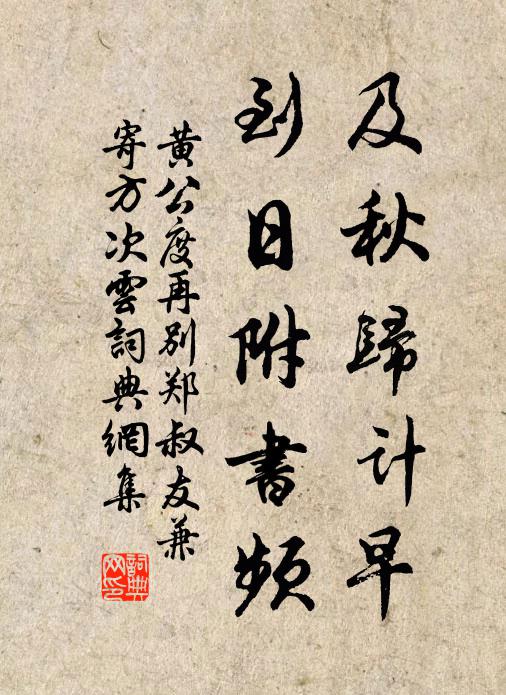 及秋歸计早
到日附書頻
黄公度再别郑叔友兼
寄方次雲詞典網集
詞典
网印